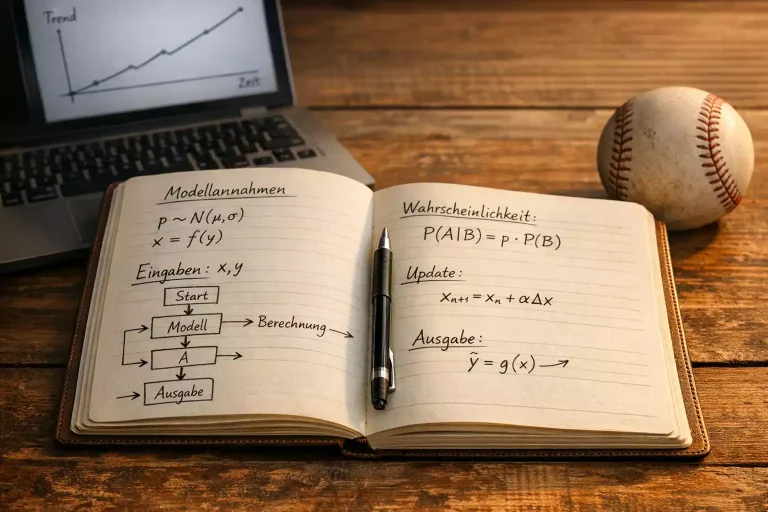 Trend
Zeit
Modellannahmen
p ~ N(μ,σ)
x = f(y)
Eingaben: x,y
Start
Modell
Berechnung
A
Ausgabe
Wahrscheinlichkeit:
P(A|B) = p · P(B)
Update:
xₙ₊₁ = xₙ + αΔx
Ausgabe:
ỹ = g(x)